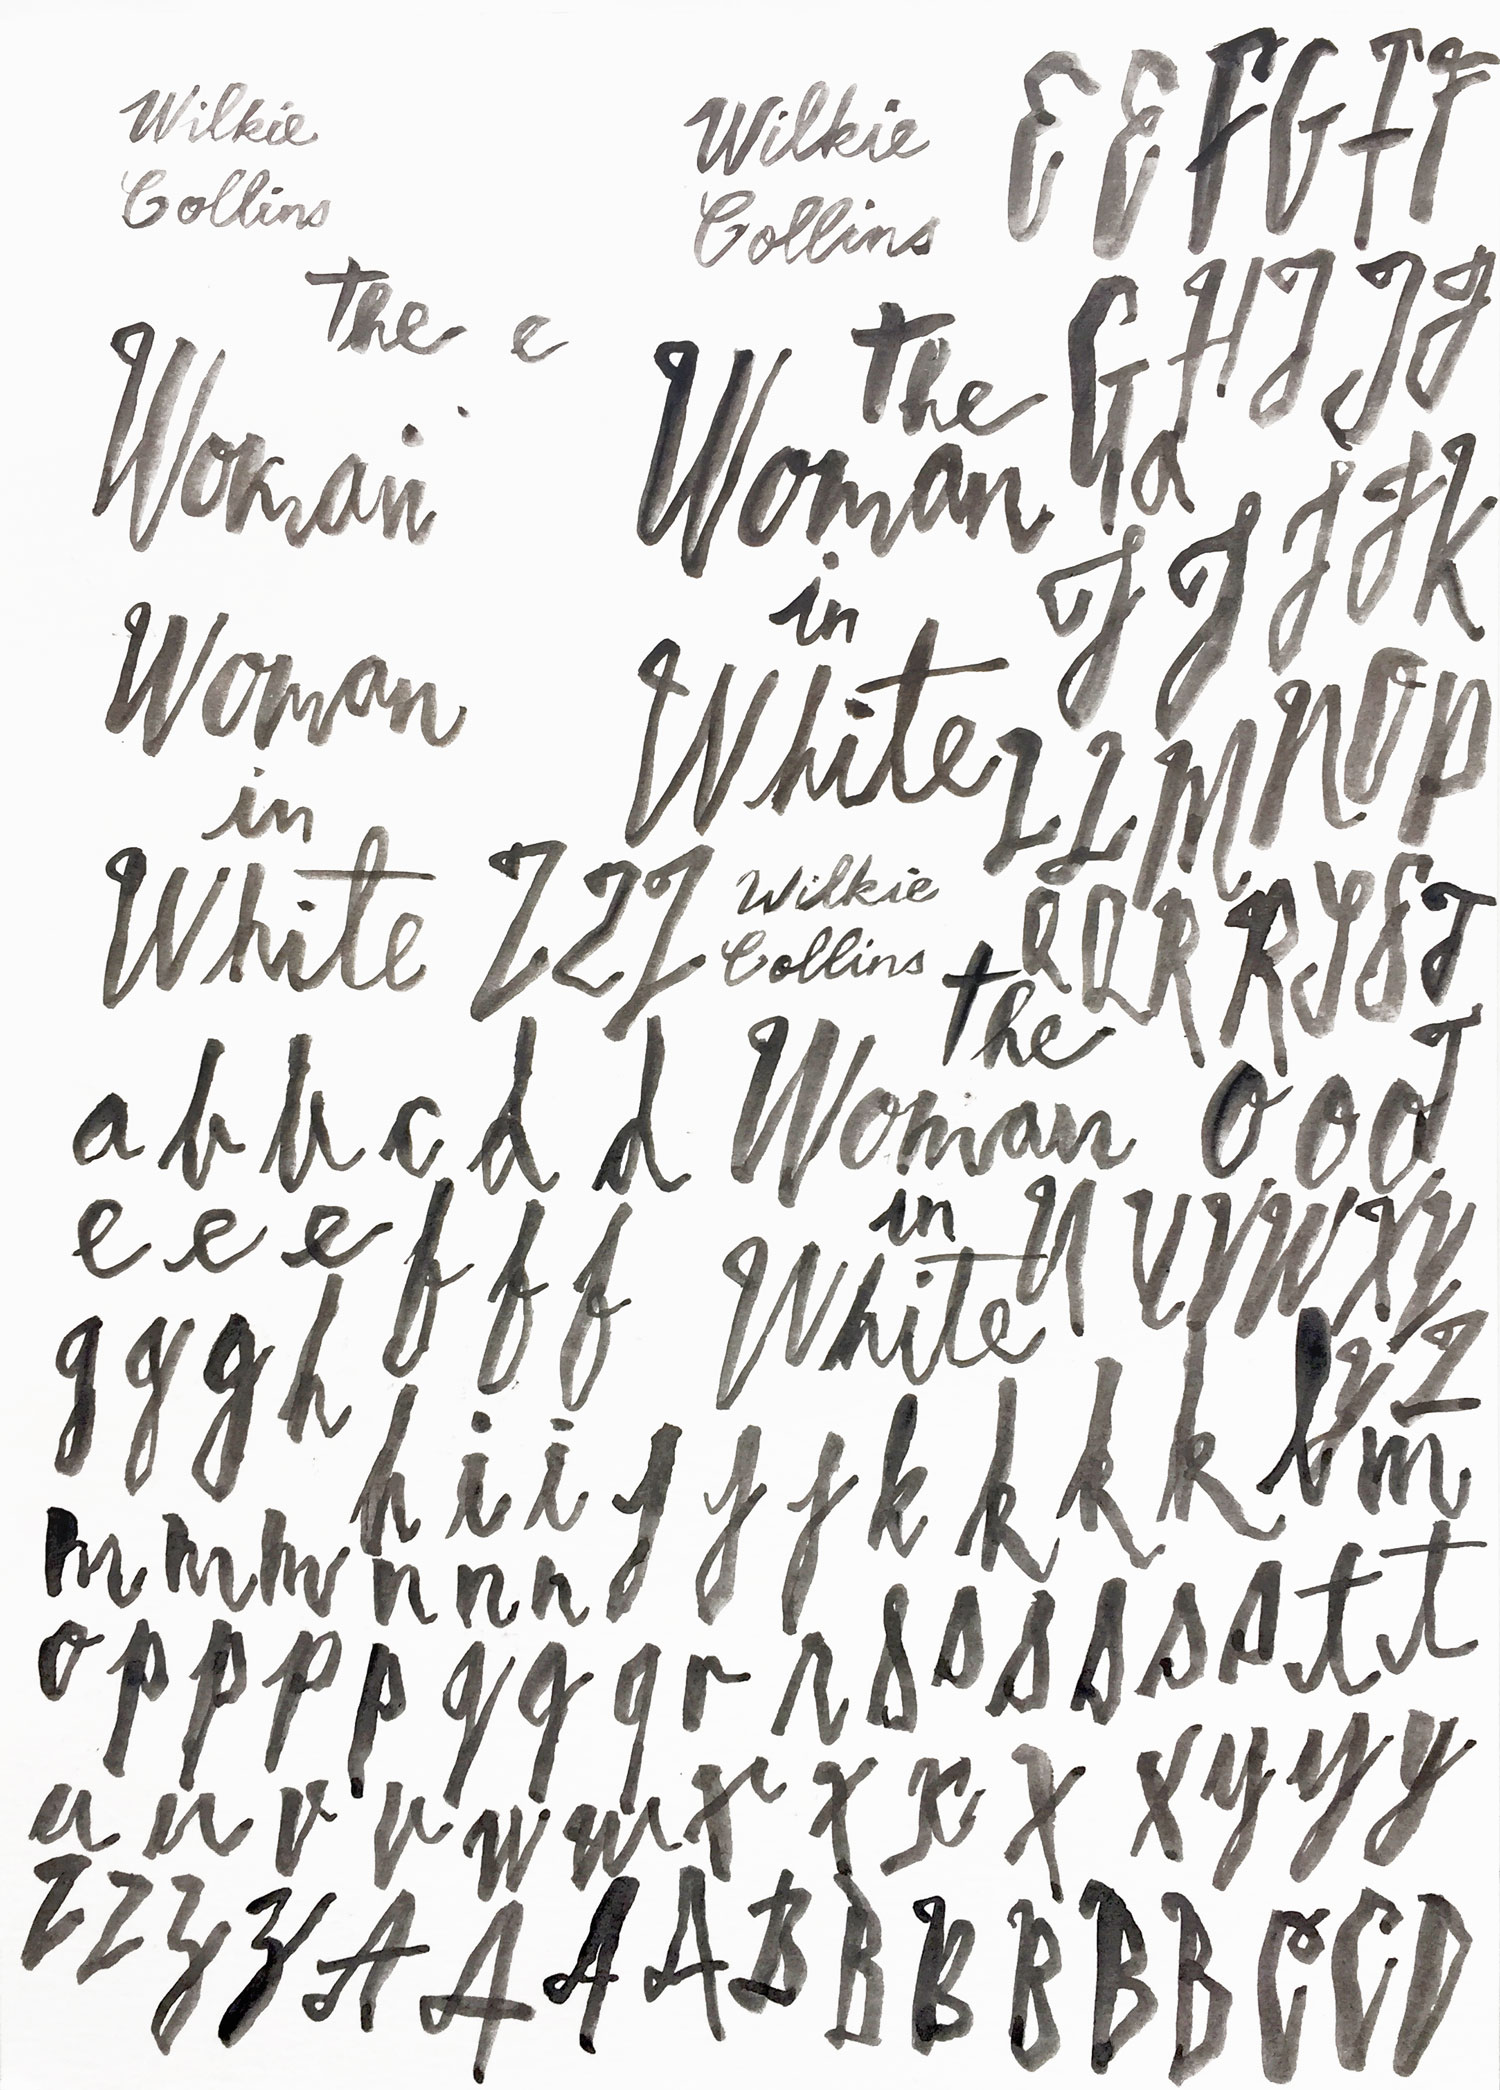 Wilkie
Collins
the e
Woman
Woman
in
White
Z Z Z
Wilkie
Collins
the
Woman
in
White
Wilkie
Collins
the
Woman
in
White
E E F G I F
G H I J J
G a
J J J J K
L L M N O P
Q Q R R S S T
O O O T
U V V W X Y
Y Z
a b b c d d
e e e f f f
g g g h
h i i j j j k k k k l m
m m m n n n
o p p p p q q q r r s s s s s s t t
u u v v w w x x x x x y y y
z z z z A A A A B B B B B B C C D